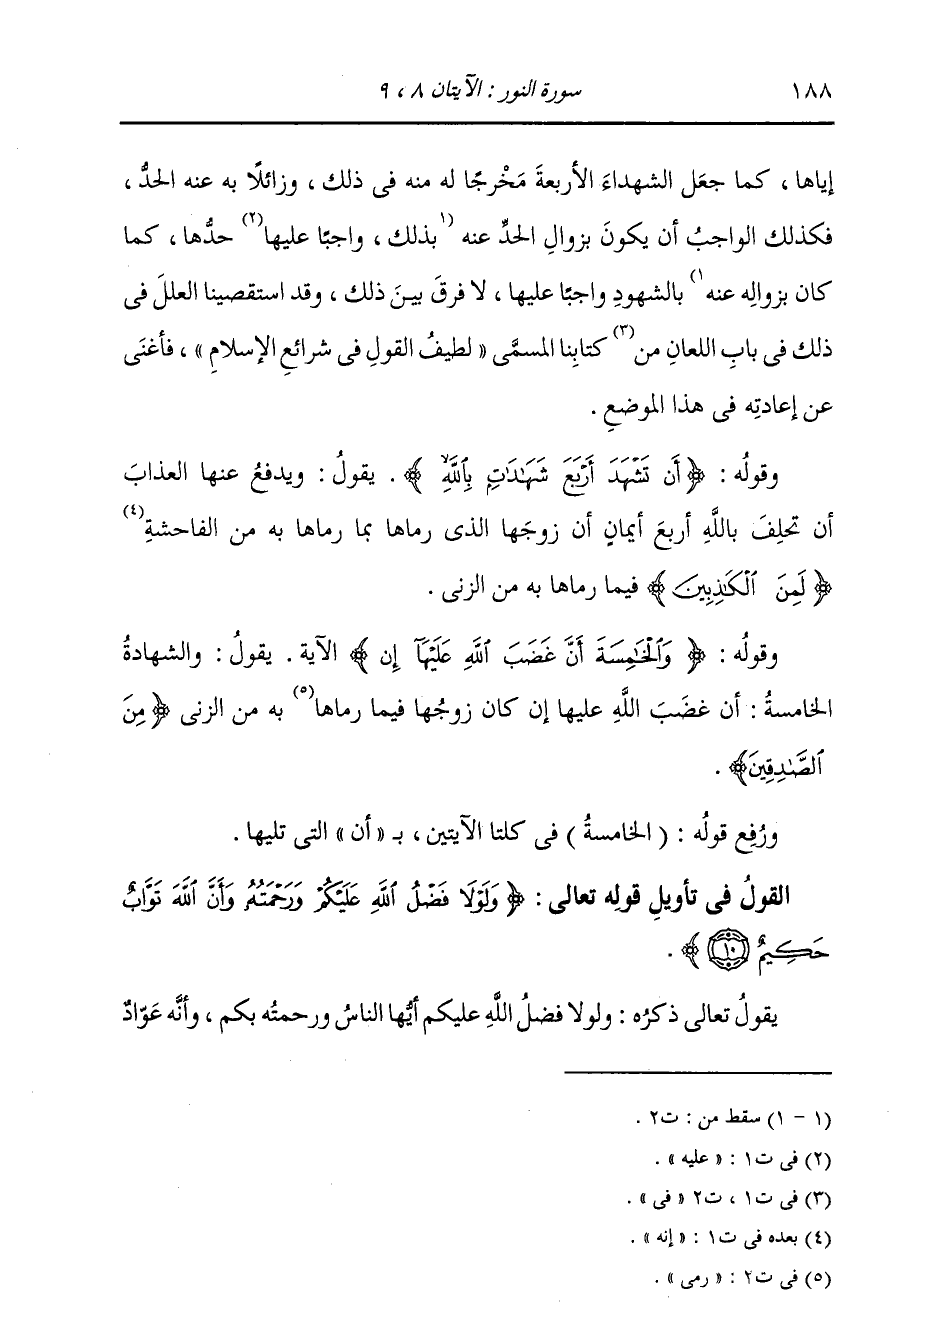 ١٨٨ سورة النور : الآيتان ٨ ، ٩
إياها ، كما جعَل الشهداءَ الأربعةَ مَخْرجًا له منه فى ذلك ، وزائلًا به عنه الحدُّ ،
فكذلك الواجبُ أن يكونَ بزوالِ الحدِّ عنه (١ بذلك ، واجبًا عليها(٢) حدُّها ، كما
كان بزوالِه عنه١) بالشهودِ واجبًا عليها ، لا فرقَ بينَ ذلك ، وقد استقصينا العللَ فى
ذلك فى بابِ اللعانِ من(٣) كتابِنا المسمَّى « لطيفُ القولِ فى شرائعِ الإسلامِ » ، فأغنَى
عن إعادتِه فى هذا الموضعِ .
وقولُه : ﴿ أَن تَشْهَدَ أَرْبَعَ شَهَٰدَٰتٍۭ بِٱللَّهِۙ ﴾ . يقولُ : ويدفعُ عنها العذابَ
أن تحلِفَ باللَّهِ أربعَ أيمانٍ أن زوجَها الذى رماها بما رماها به من الفاحشةِ(٤)
﴿ لَمِنَ ٱلْكَٰذِبِينَ ﴾ فيما رماها به من الزنى .
وقولُه : ﴿ وَٱلْخَٰمِسَةَ أَنَّ غَضَبَ ٱللَّهِ عَلَيْهَآ إِن ﴾ الآية . يقولُ : والشهادةُ
الخامسةُ : أن غضَبَ اللَّهِ عليها إن كان زوجُها فيما رماها(٥) به من الزنى ﴿ مِنَ
ٱلصَّٰدِقِينَ﴾ .
ورُفِع قولُه : ( الخامسةُ ) فى كلتا الآيتين ، بـ « أن » التى تليها .
القولُ فى تأويلِ قولِه تعالى : ﴿ وَلَوْلَا فَضْلُ ٱللَّهِ عَلَيْكُمْ وَرَحْمَتُهُۥ وَأَنَّ ٱللَّهَ تَوَّابٌ
حَكِيمٌ ١٠ ﴾ .
يقولُ تعالى ذكرُه : ولولا فضلُ اللَّهِ عليكم أيُّها الناسُ ورحمتُه بكم ، وأنَّه عَوّادٌ
(١ - ١) سقط من : ت٢ .
(٢) فى ت١ : « عليه » .
(٣) فى ت١ ، ت٢ « فى » .
(٤) بعده فى ت١ : « إنه » .
(٥) فى ت٢ : « رمى » .